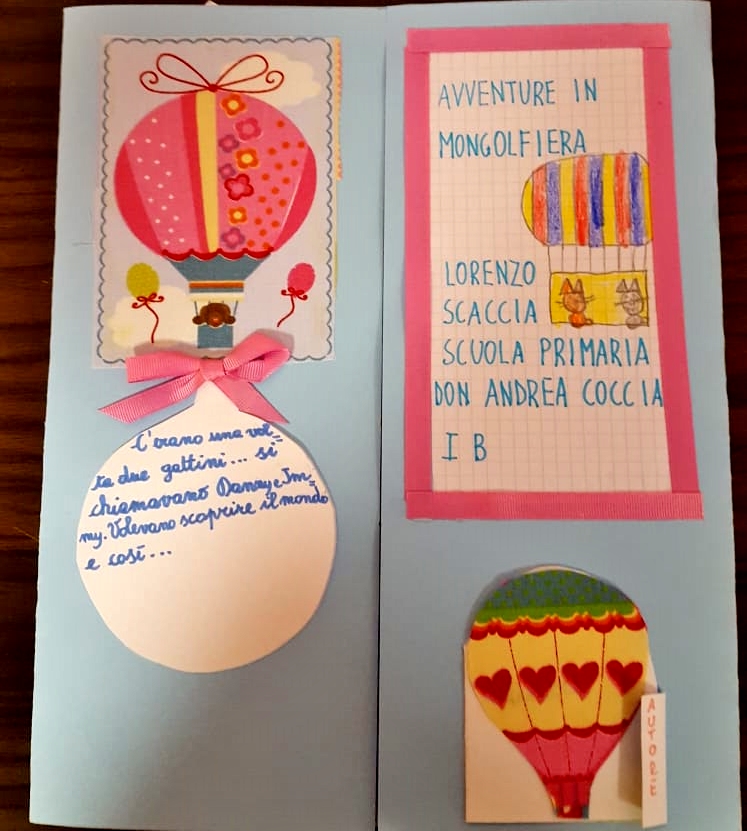 C'erano una vol=
ta due gattini... si
chiamavano Danny e Jm=
my. Volevano scoprire il mondo
e così...
AVVENTURE IN
MONGOLFIERA
LORENZO
SCACCIA
SCUOLA PRIMARIA
DON ANDREA COCCIA
I B
AUTORE